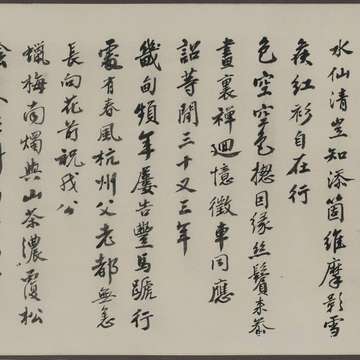 水仙清苦知添箇維摩影雪
衰紅衫自在行
色空空色揔因緣絲鬢來參
畫裏禪廻憶徵車同應
詔等閒三十又三年
畿甸頻年屢告豐馬蹏行
處有春風杭州父老都無恙
長向花前祝我公
蠟梅南燭與山茶濃覆松